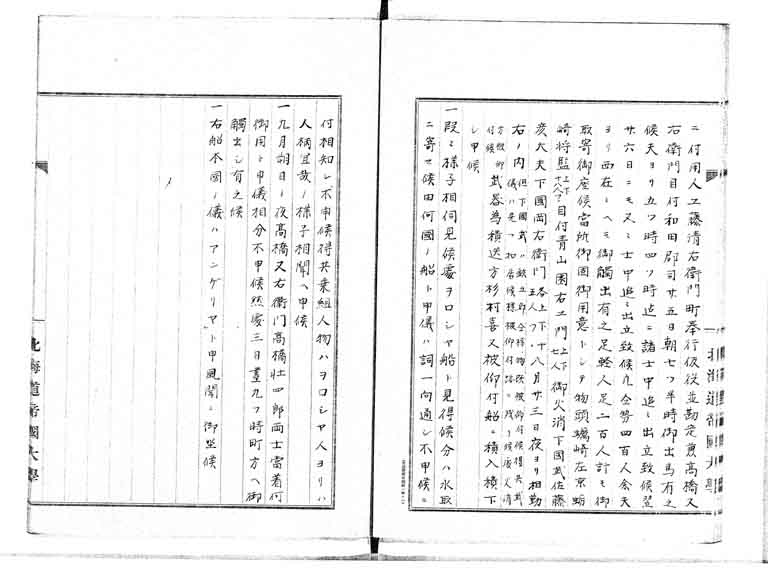 ニ付用人工藤清右衛門町奉行仮役並勘定兼高橋又
右衛門目付和田郡司廿五日朝七ツ半時御出馬有之
候天ヨリ五ツ時四ツ時迄ニ諸士中追々出立致候翌
廿六日ニモ又々士中追々出立致候凡企勢四百人余夫
ヨリ西在々ヘモ御觸出有之足軽人足二百人計モ御
取寄御座候當所御固御用意トシテ物頭蠣崎左京蛎
崎将監上下十八人目付青山園右エ門上下七人御火消下國武佐藤
彦太夫下國岡右衛門各上下五人ツヽ十八月廿三日夜ヨリ相勤
右ノ内
付候武器為積送方杉村喜又被仰付船ニ積入積下
シ申候
一段々様子相伺見候處ヲロシヤ船ト見得候分ハ水取
ニ寄セ候由何國ノ船ト申儀ハ詞一向通シ不申候ニ
付相知レ不申候得共乗組人物ハヲロシヤ人ヨリハ
人柄宜敷ノ様子相聞ヘ申候
一九月朔日ノ夜高橋又右衛門高橋壮四郎両士當着何
御用ト申儀相分不申候然處三日晝九ツ時町方ヘ御
觸出シ有之候
一右船本國ノ儀ハアンゲリヤト申風聞ニ御座候
北海道帝國大學
北海道帝國大學